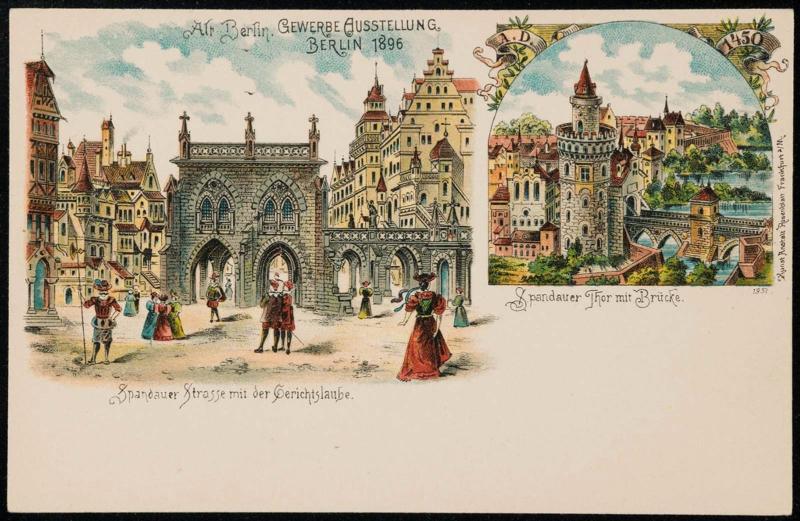 Alt Berlin. GEWERBE AUSSTELLUNG
BERLIN 1896
A.D. 1450
Spandauer Strasse mit der Gerichtslaube.
Spandauer Thor mit Brücke.
1951
Kunst Anstalt Rosenblatt Frankfurt a/M.